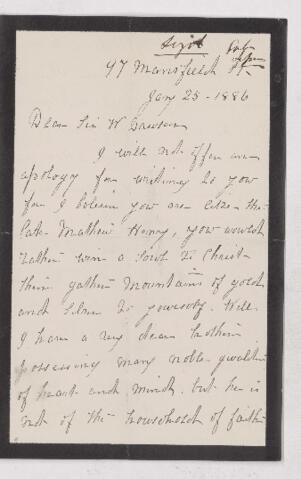 97 Mansfield St.
Jany 25 - 1886
Dear Sir W Dawson
I will not offer an
apology for writing to you
for I beleive you are like the
late Mathew Henry, you would
rather win a soul to Christ
then gather mountains of gold
and silver to yourself. Well
I have a very dear brother
possessing many noble qualities
of heart and mind, but he is
not of the household of faith